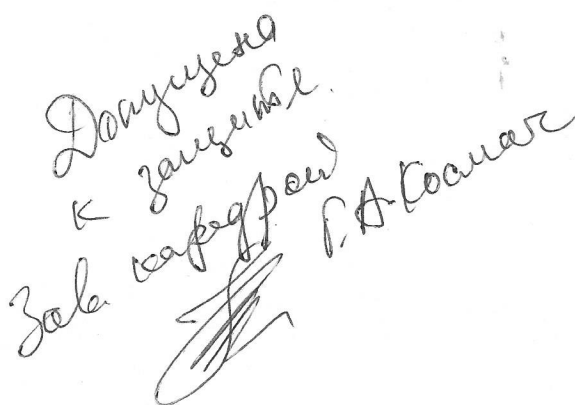 Допущена
к защите.
Зав. кафедрой
Г.А. Космач